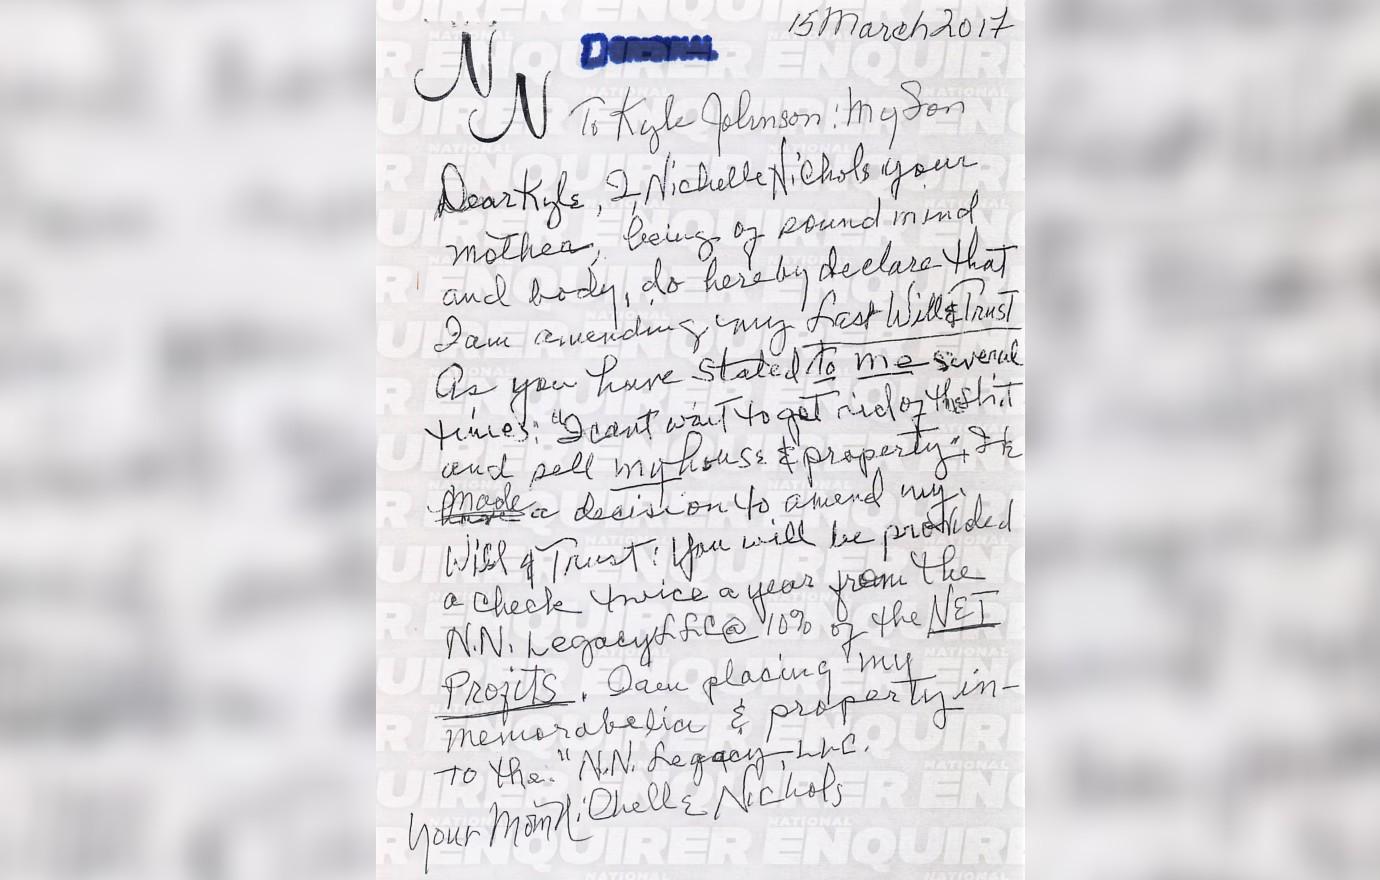 15 March 2017
N
N
To Kyle Johnson: My Son
Dear Kyle, I, Nichelle Nichols your
mother, being of sound mind
and body, do hereby declare that
I am amending my Last Will & Trust
As you have stated to me several
times: "I cant wait to get rid of this shit
and sell my house & property", I
made a decision to amend my
Will & Trust: You will be provided
a check twice a year from the
N.N. Legacy LLC @ 10% of the NET
Profits. I am placing my
memorabelia & property in-
to the "N.N. Legacy, LLC.
Your Mom Nichelle Nichols
NATIONAL ENQUIRER